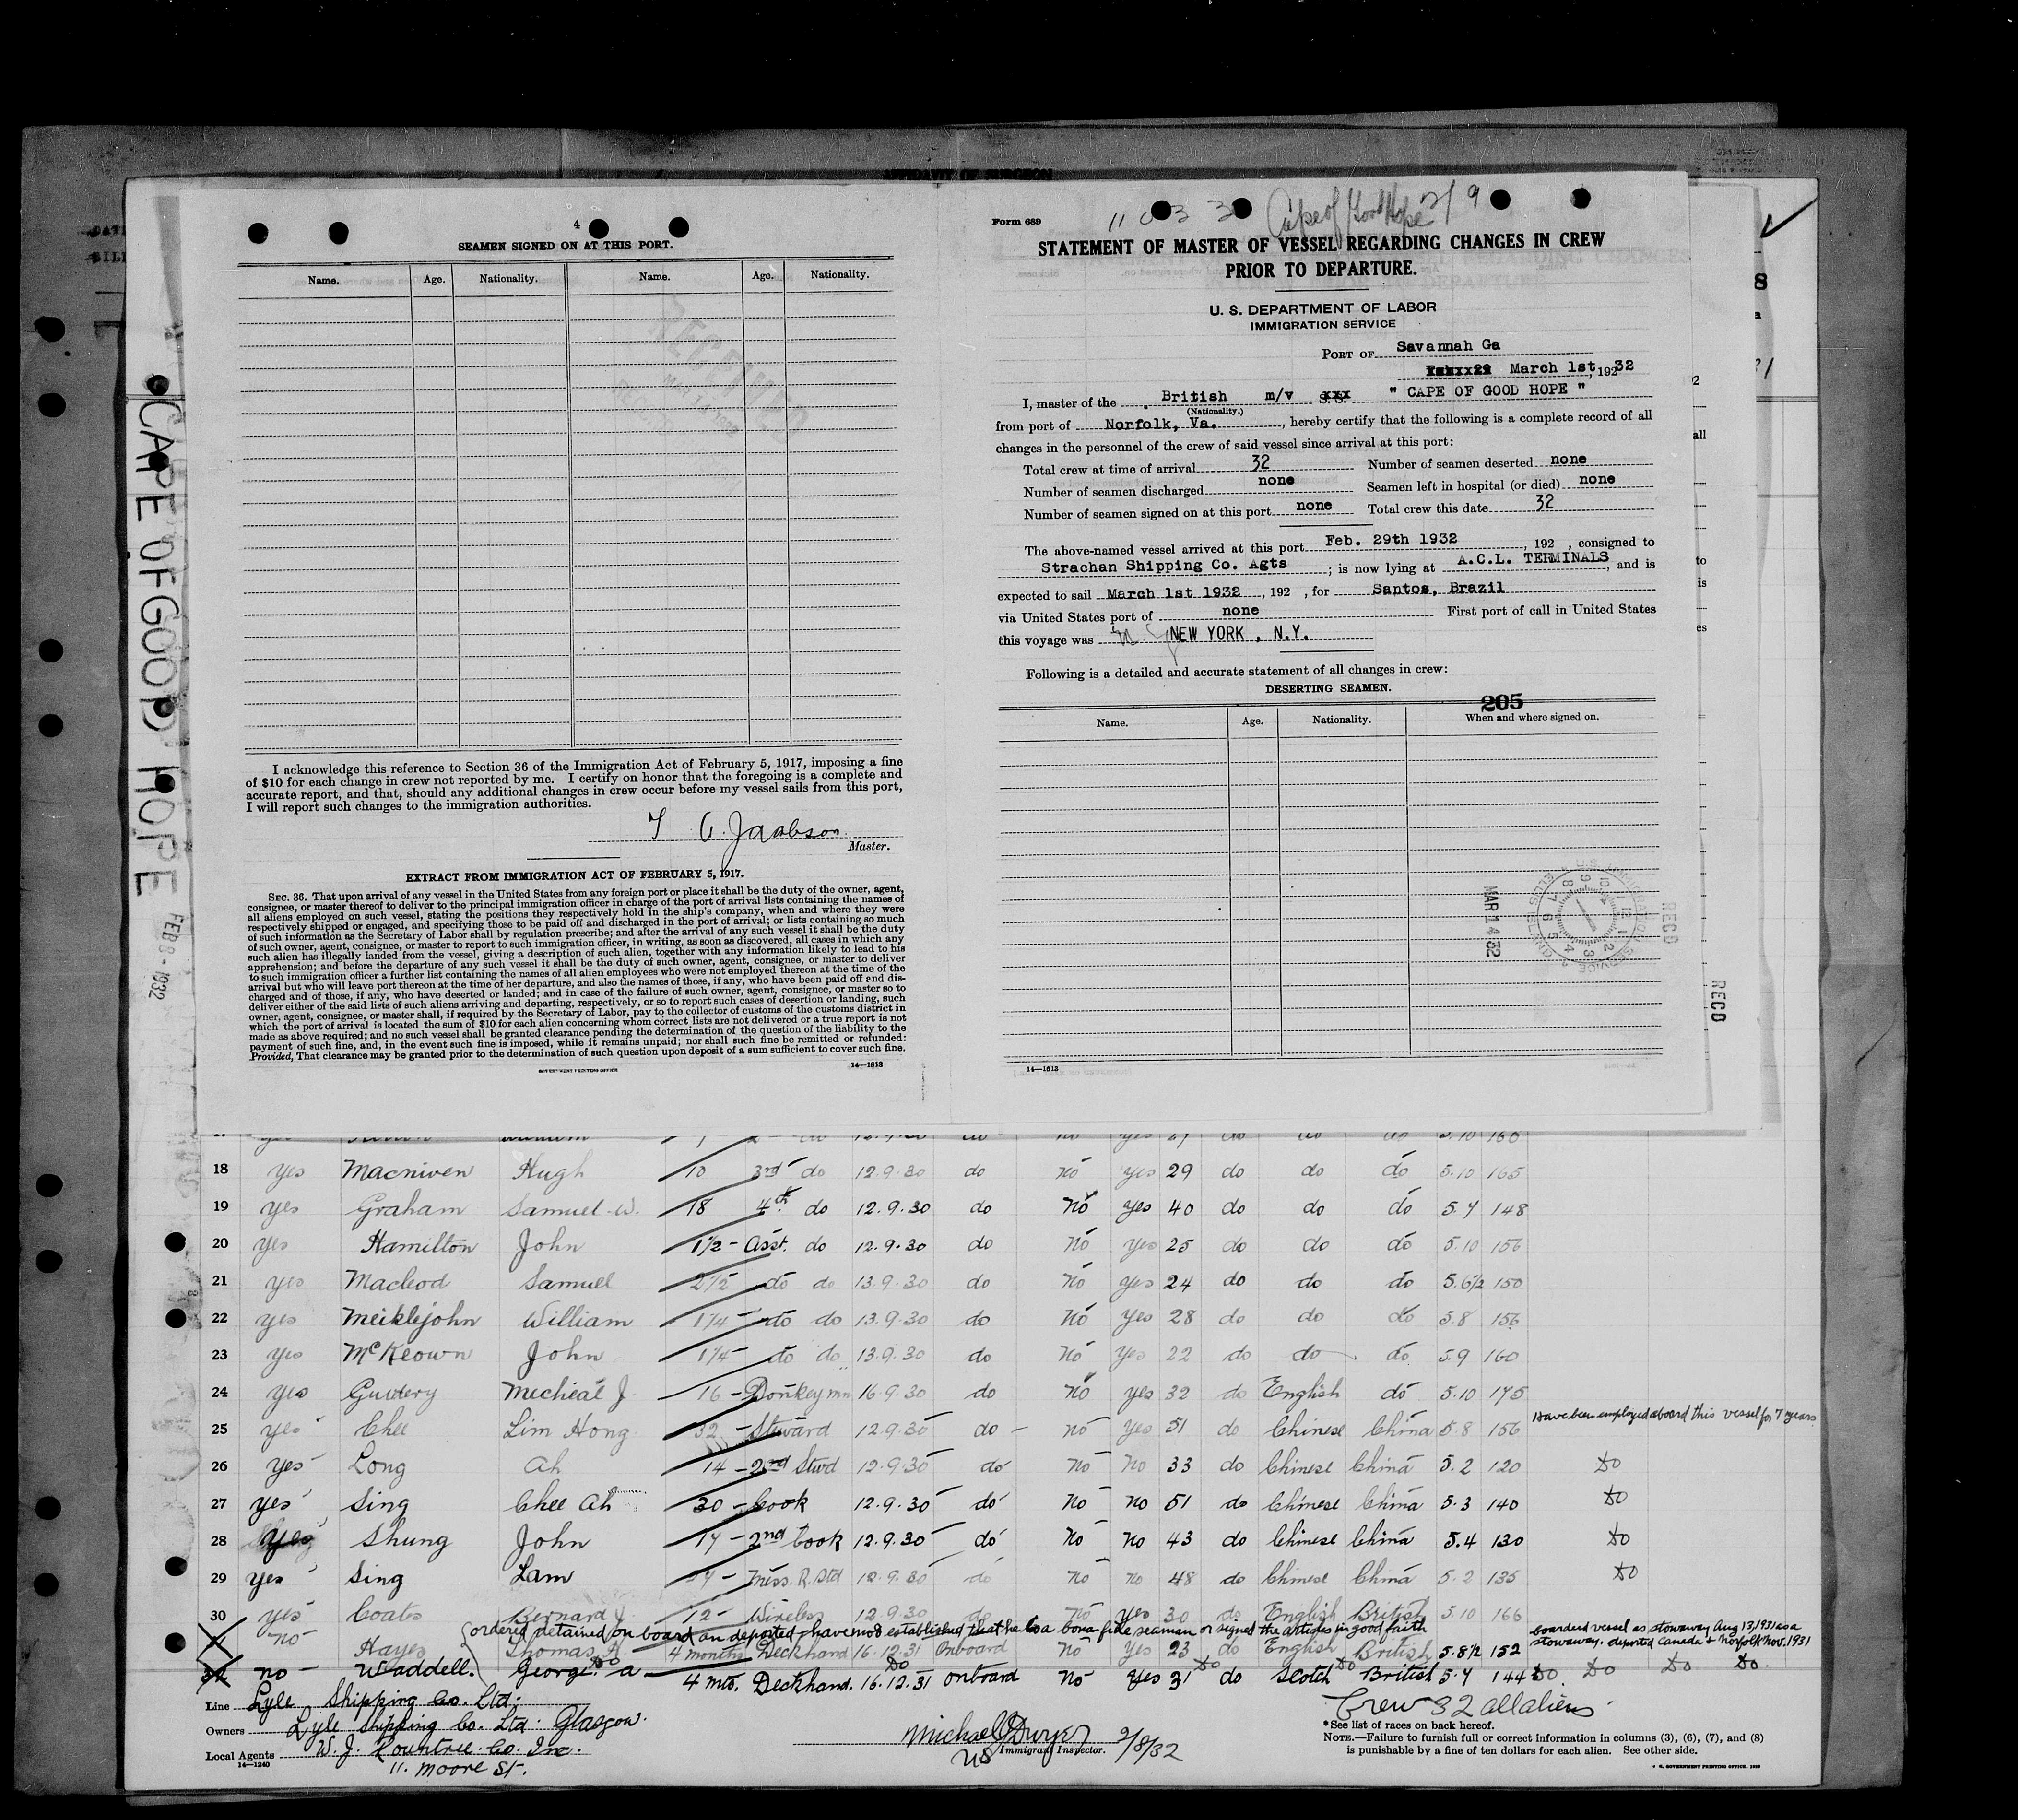 CAPE OF GOOD HOPE
FEB 8 - 1932
4
SEAMEN SIGNED ON AT THIS PORT.
Name. Age. Nationality. Name. Age. Nationality.
RECEIVED
I acknowledge this reference to Section 36 of the Immigration Act of February 5, 1917, imposing a fine
of $10 for each change in crew not reported by me. I certify on honor that the foregoing is a complete and
accurate report, and that, should any additional changes in crew occur before my vessel sails from this port,
I will report such changes to the immigration authorities.
Jacobson
Master.
EXTRACT FROM IMMIGRATION ACT OF FEBRUARY 5, 1917.
SEC. 36. That upon arrival of any vessel in the United States from any foreign port or place it shall be the duty of the owner, agent,
consignee, or master thereof to deliver to the principal immigration officer in charge of the port of arrival lists containing the names of
all aliens employed on such vessel, stating the positions they respectively hold in the ship's company, when and where they were
respectively shipped or engaged, and specifying those to be paid off and discharged in the port of arrival; or lists containing so much
of such information as the Secretary of Labor shall by regulation prescribe; and after the arrival of any such vessel it shall be the duty
of such owner, agent, consignee, or master to report to such immigration officer, in writing, as soon as discovered, all cases in which any
such alien has illegally landed from the vessel, giving a description of such alien, together with any information likely to lead to his
apprehension; and before the departure of any such vessel it shall be the duty of such owner, agent, consignee, or master to deliver
to such immigration officer a further list containing the names of all alien employees who were not employed thereon at the time of the
arrival but who will leave port thereon at the time of her departure, and also the names of those, if any, who have been paid off and dis-
charged and of those, if any, who have deserted or landed; and in case of the failure of such owner, agent, consignee, or master so to
deliver either of the said lists of such aliens arriving and departing, respectively, or so to report such cases of desertion or landing, such
owner, agent, consignee, or master shall, if required by the Secretary of Labor, pay to the collector of customs of the customs district in
which the port of arrival is located the sum of $10 for each alien concerning whom correct lists are not delivered or a true report is not
made as above required; and no such vessel shall be granted clearance pending the determination of the question of the liability to the
payment of such fine, and, in the event such fine is imposed, while it remains unpaid; nor shall such fine be remitted or refunded:
Provided, That clearance may be granted prior to the determination of such question upon deposit of a sum sufficient to cover such fine.
GOVERNMENT PRINTING OFFICE 14—1613
Form 689 Cape of Good Hope 2/9
STATEMENT OF MASTER OF VESSEL REGARDING CHANGES IN CREW
PRIOR TO DEPARTURE.
U. S. DEPARTMENT OF LABOR
IMMIGRATION SERVICE
PORT OF Savannah Ga
March 1st, 19232
I, master of the British m/v S.S. xxx " CAPE OF GOOD HOPE "
(Nationality.)
from port of Norfolk, Va., hereby certify that the following is a complete record of all
changes in the personnel of the crew of said vessel since arrival at this port:
Total crew at time of arrival 32 Number of seamen deserted none
Number of seamen discharged none Seamen left in hospital (or died) none
Number of seamen signed on at this port none Total crew this date 32
The above-named vessel arrived at this port Feb. 29th 1932, 192 , consigned to
Strachan Shipping Co. Agts ; is now lying at A.C.L. TERMINALS, and is
expected to sail March 1st 1932, 192 , for Santos, Brazil
via United States port of none First port of call in United States
this voyage was NEW YORK , N.Y.
Following is a detailed and accurate statement of all changes in crew:
DESERTING SEAMEN.
205
Name. Age. Nationality. When and where signed on.
MAR 14 32
RECD
RECD
14—1613
18 yes Macniven Hugh 10 3rd do 12.9.30 do No yes 29 do do do 5.10 165
19 yes Graham Samuel W. 18 4th do 12.9.30 do No yes 40 do do do 5.7 148
20 yes Hamilton John 1½ - Asst. do 12.9.30 do No yes 25 do do do 5.10 156
21 yes Macleod Samuel 2½ do do 13.9.30 do No yes 24 do do do 5.6½ 150
22 yes Meiklejohn William 1¼ - do do 13.9.30 do No yes 28 do do do 5.8 156
23 yes McKeown John 1¼ - do do 13.9.30 do No yes 22 do do do 5.9 160
24 yes Micheal J. 16 - Donkeymn 16.9.30 do No yes 32 do English do 5.10 175
25 yes Chee Lim Hong 32 - Steward 12.9.30 do - No yes 51 do Chinese China 5.8 156 Have been employed aboard this vessel for 7 years
26 yes Long Ah 14 - 2nd Stwd 12.9.30 do No No 33 do Chinese China 5.2 120 Do
27 yes Sing Chee Ah 30 - Cook 12.9.30 do No no 51 do Chinese China 5.3 140 Do
28 yes Shung John 17 - 2nd Cook 12.9.30 do No no 43 do Chinese China 5.4 130 Do
29 yes Sing Lam Mess. R. Std 12.9.30 do No no 48 do Chinese China 5.2 135 Do
30 yes Coats Bernard J. 12 - Wireless 12.9.30 do No yes 30 do English British 5.10 166
ordered detained on board an deported have not established that he is a bona fide seaman or signed the articles in good faith
boarded vessel as stowaway Aug 13/1931 as a
stowaway. deported Canada + Norfolk Nov. 1931
no Hayes Thomas H. 4 months Deckhand 16.12.31 Onboard No Yes 23 do English British 5.8½ 152
no - Waddell. George. a 4 mts. Deckhand. 16.12.31 onboard No yes 31 do Scotch British 5.7 144 Do Do Do Do
Line Lyle Shipping Co. Ltd.
Owners Lyle Shipping Co. Ltd. Glasgow.
Local Agents W. J. Rountree Co. Inc.
14—1240 11. Moore St.
Michael O'Dwyer 2/8/32
US Immigrant Inspector.
Crew 32 all aliens
*See list of races on back hereof.
NOTE.—Failure to furnish full or correct information in columns (3), (6), (7), and (8)
is punishable by a fine of ten dollars for each alien. See other side.